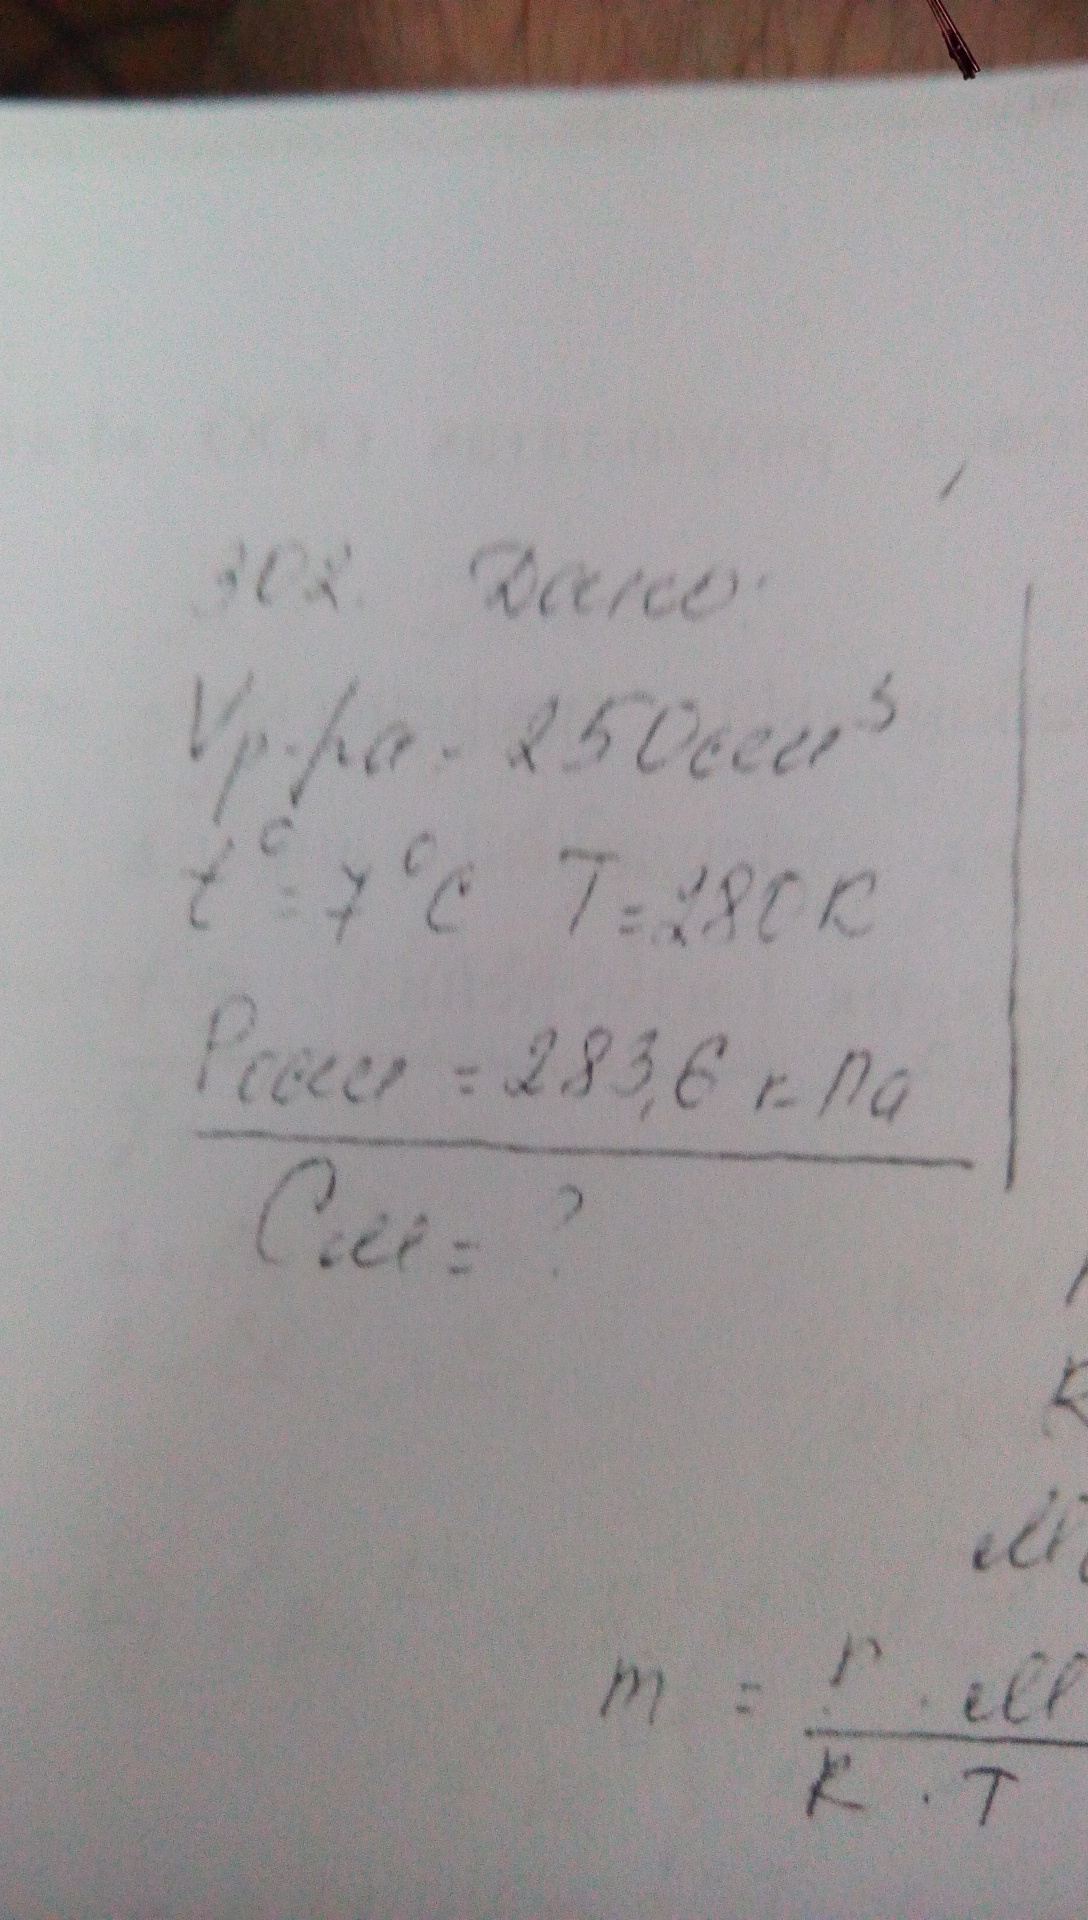 302. Дано:
Vр-ра = 250 см³
t° = 7°C T = 280 K
Pосм = 283,6 кПа
Cм = ?
m =
R · T